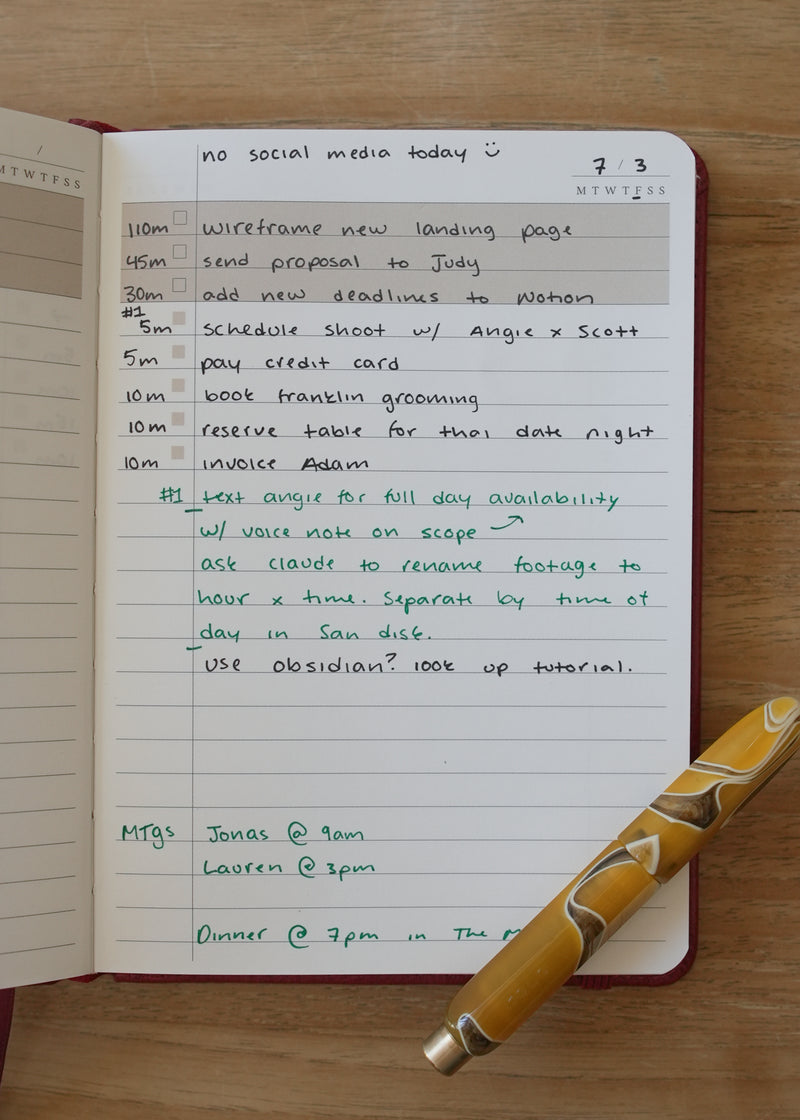 no social media today ☺
7 / 3
M T W T F S S
/
M T W T F S S
110m wireframe new landing page
45m send proposal to Judy
30m add new deadlines to Notion
#1
5m schedule shoot w/ Angie x Scott
5m pay credit card
10m book franklin grooming
10m reserve table for thai date night
10m invoice Adam
#1 text angie for full day availability
w/ voice note on scope
ask claude to rename footage to
hour x time. Separate by time of
day in San disk.
use obsidian? look up tutorial.
MTgs Jonas @ 9am
Lauren @ 3pm
Dinner @ 7pm in The